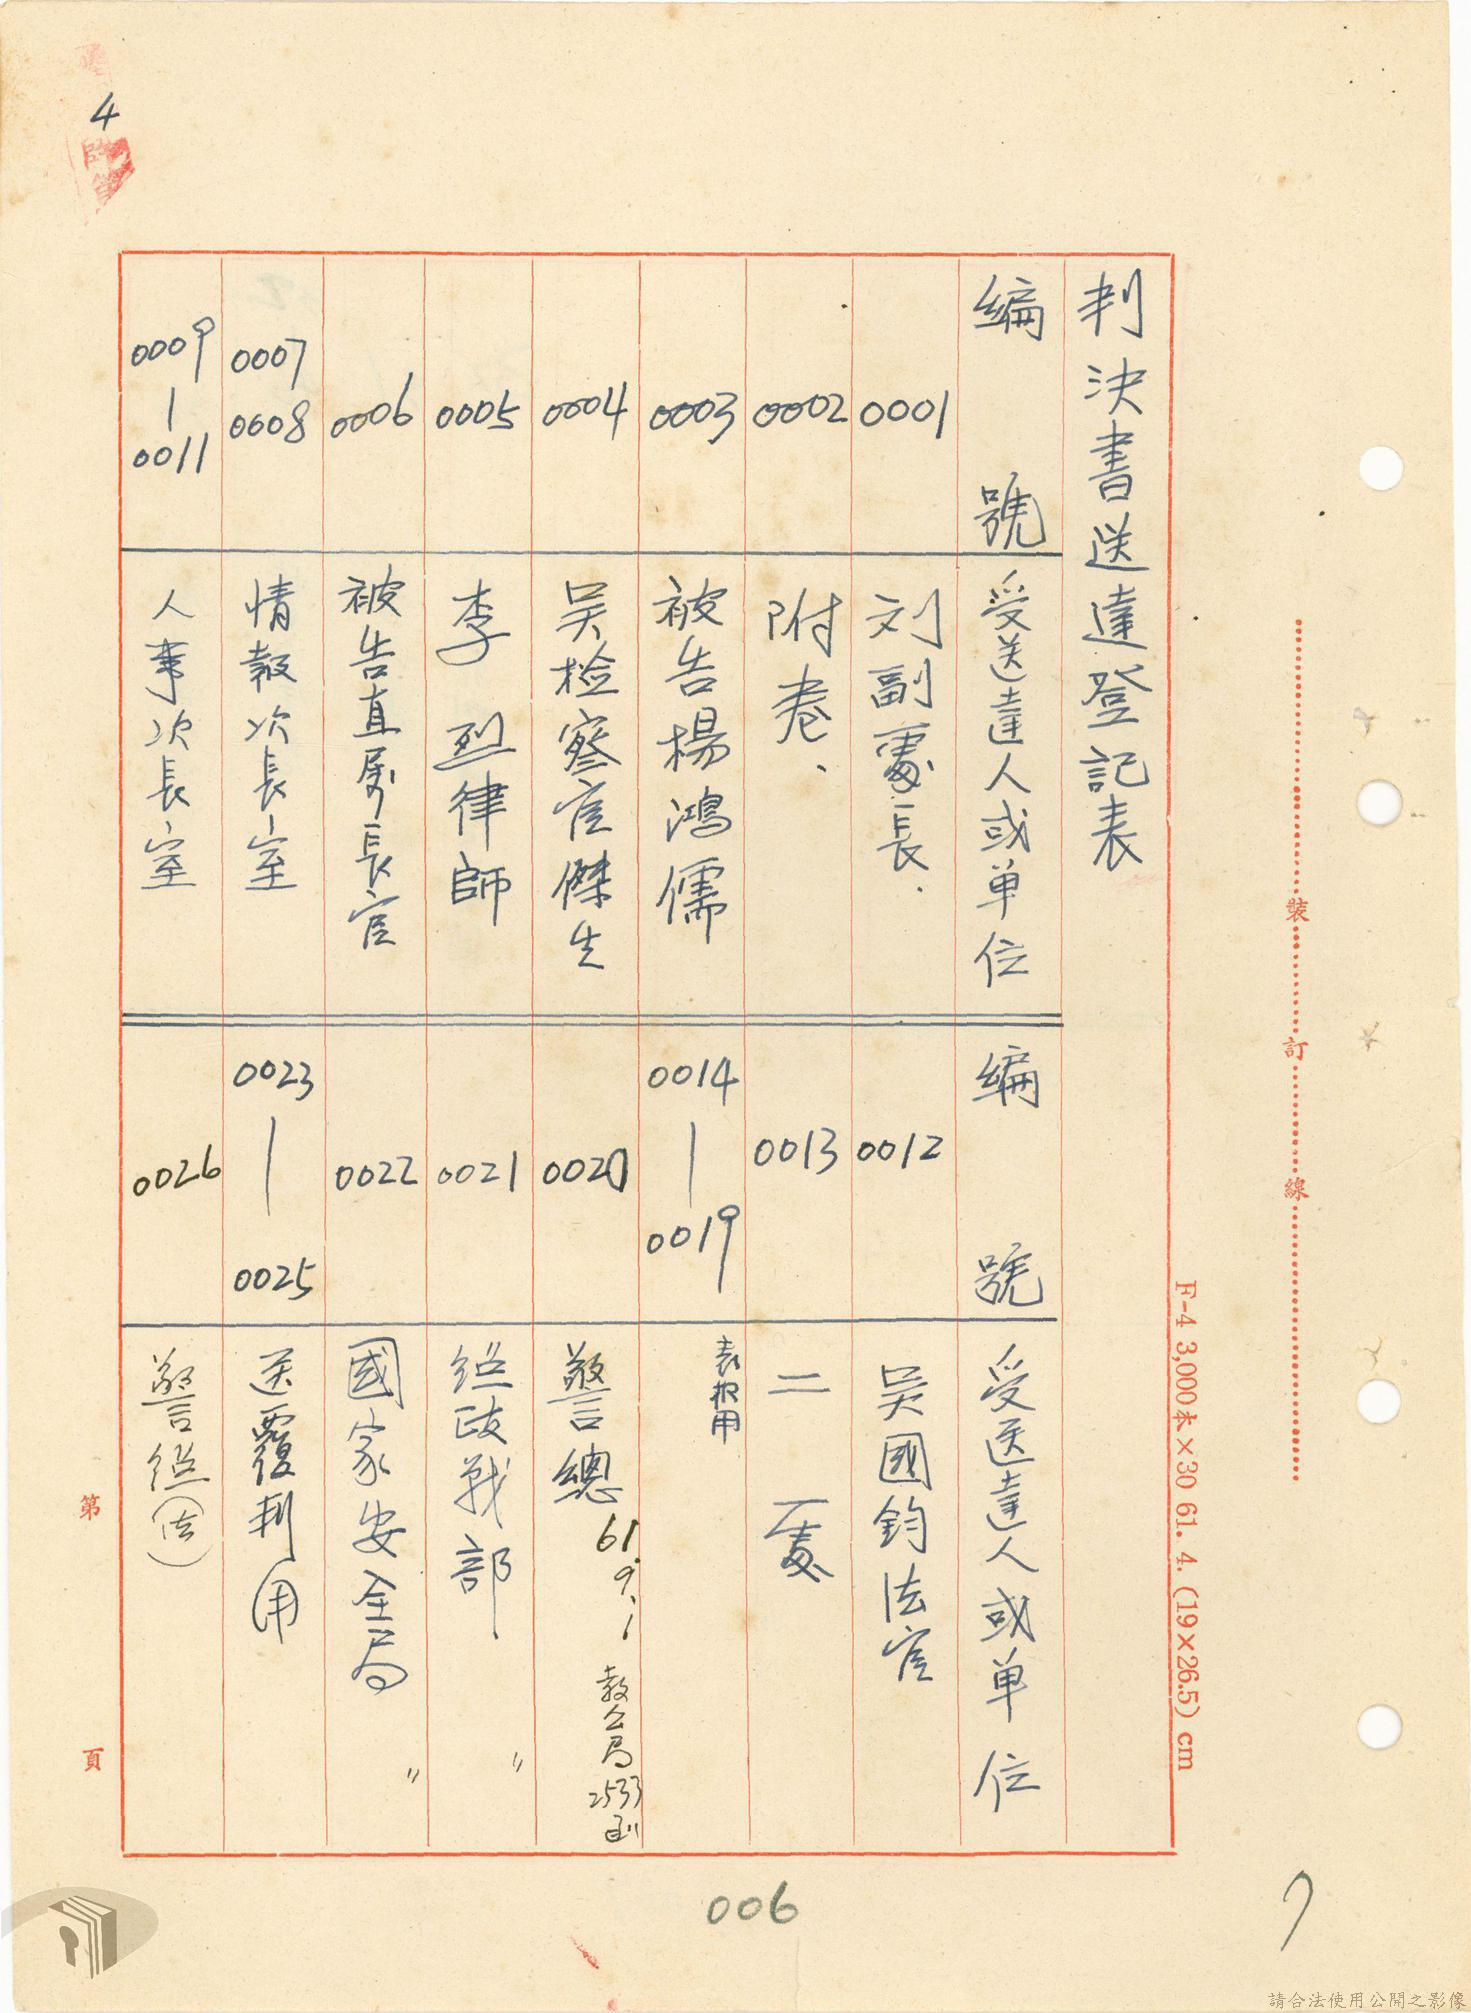 4
判決書送達登記表
編號 受送達人或单位 編號 受送達人或单位
0001 刘副處長. 0012 吴國鈞法官
0002 附卷. 0013 二處
0003 被告楊鴻儒 0014 | 0019 表报用
0004 吴检察官傑生 0020 警總 61.9.1 教公局2533函
0005 李烈律師 0021 总政戰部. 〃
0006 被告直属長官 0022 國家安全局 〃
0007 0008 情報次長室 0023 | 0025 送覆判用
0009 | 0011 人事次長室 0026 警总(法)
裝訂線
F-4 3,000本×30 61. 4. (19×26.5) cm
第 頁
006
7
請合法使用公開之影像